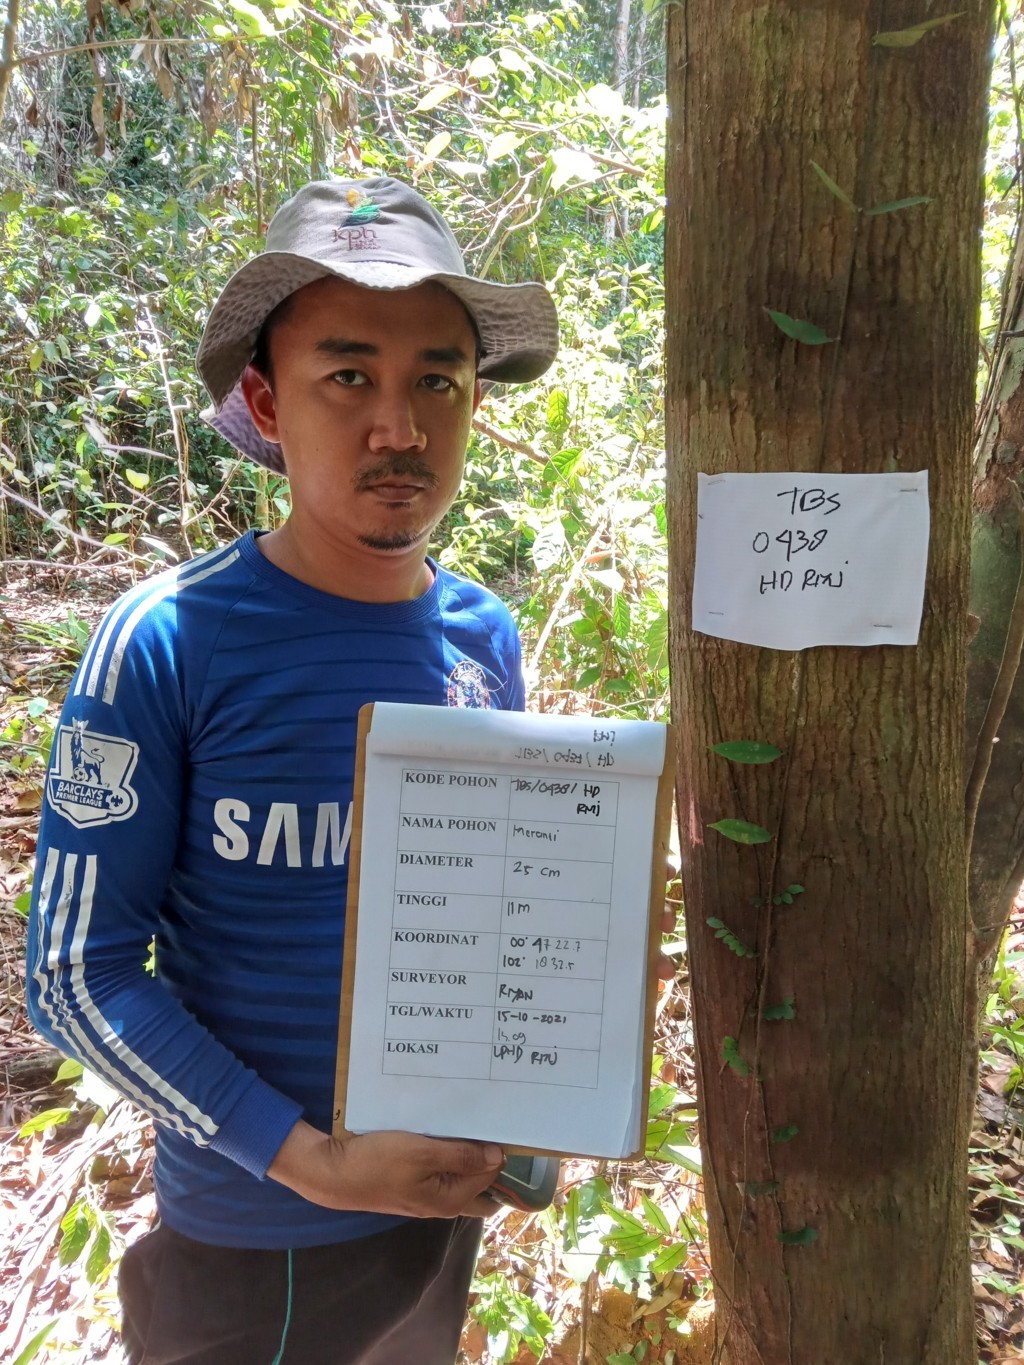 kph
TBS
0438
HD RMJ
BARCLAYS
PREMIER LEAGUE
SAM
KODE POHON TBS/0438/ HD
RMJ
NAMA POHON Meranti
DIAMETER 25 cm
TINGGI 11 M
KOORDINAT 00° 47 22.7
102° 18 32.5
SURVEYOR RIYAN
TGL/WAKTU 15-10-2021
LOKASI LPHD RMJ